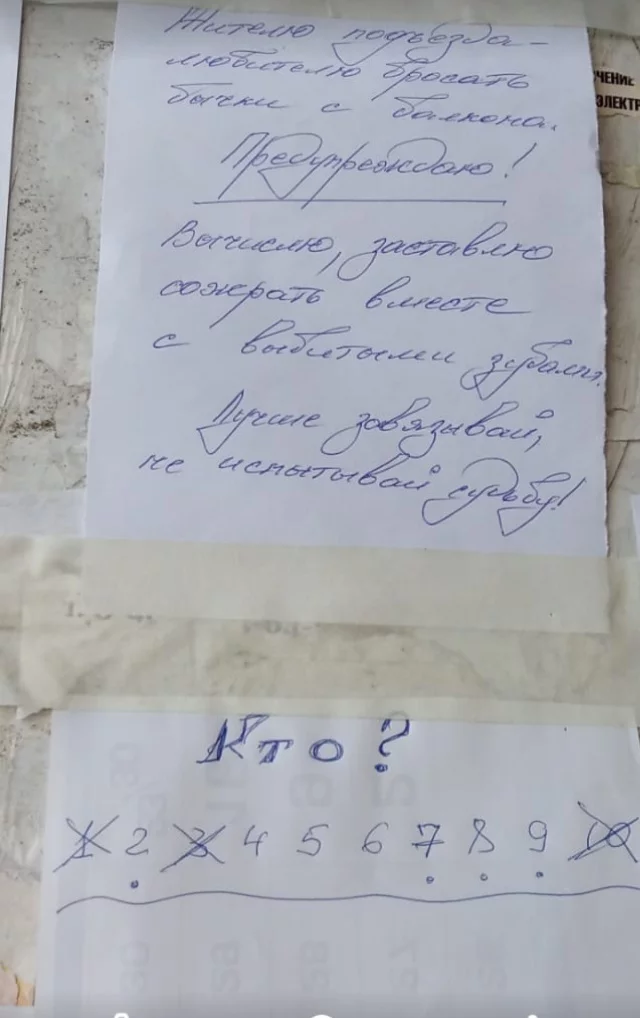 Жителю подъезда-
любителю бросать
бычки с балкона.
ЧЕНИЕ
ЭЛЕКТР
Предупреждаю!
Вычислю, заставлю
сожрать вместе
с выбитыми зубами.
Лучше завязывай,
не испытывай судьбу!
Кто?
1 2 3 4 5 6 7 8 9 10